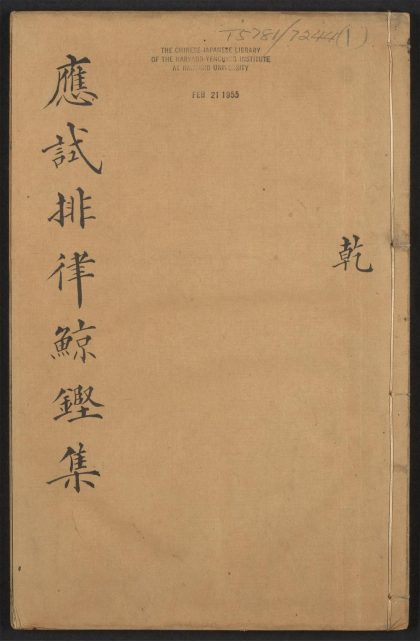 T5781/7244(1)
THE CHINESE-JAPANESE LIBRARY
OF THE HARVARD-YENCHING INSTITUTE
AT HARVARD UNIVERSITY
FEB 21 1955
應試排律鯨鏗集
乾